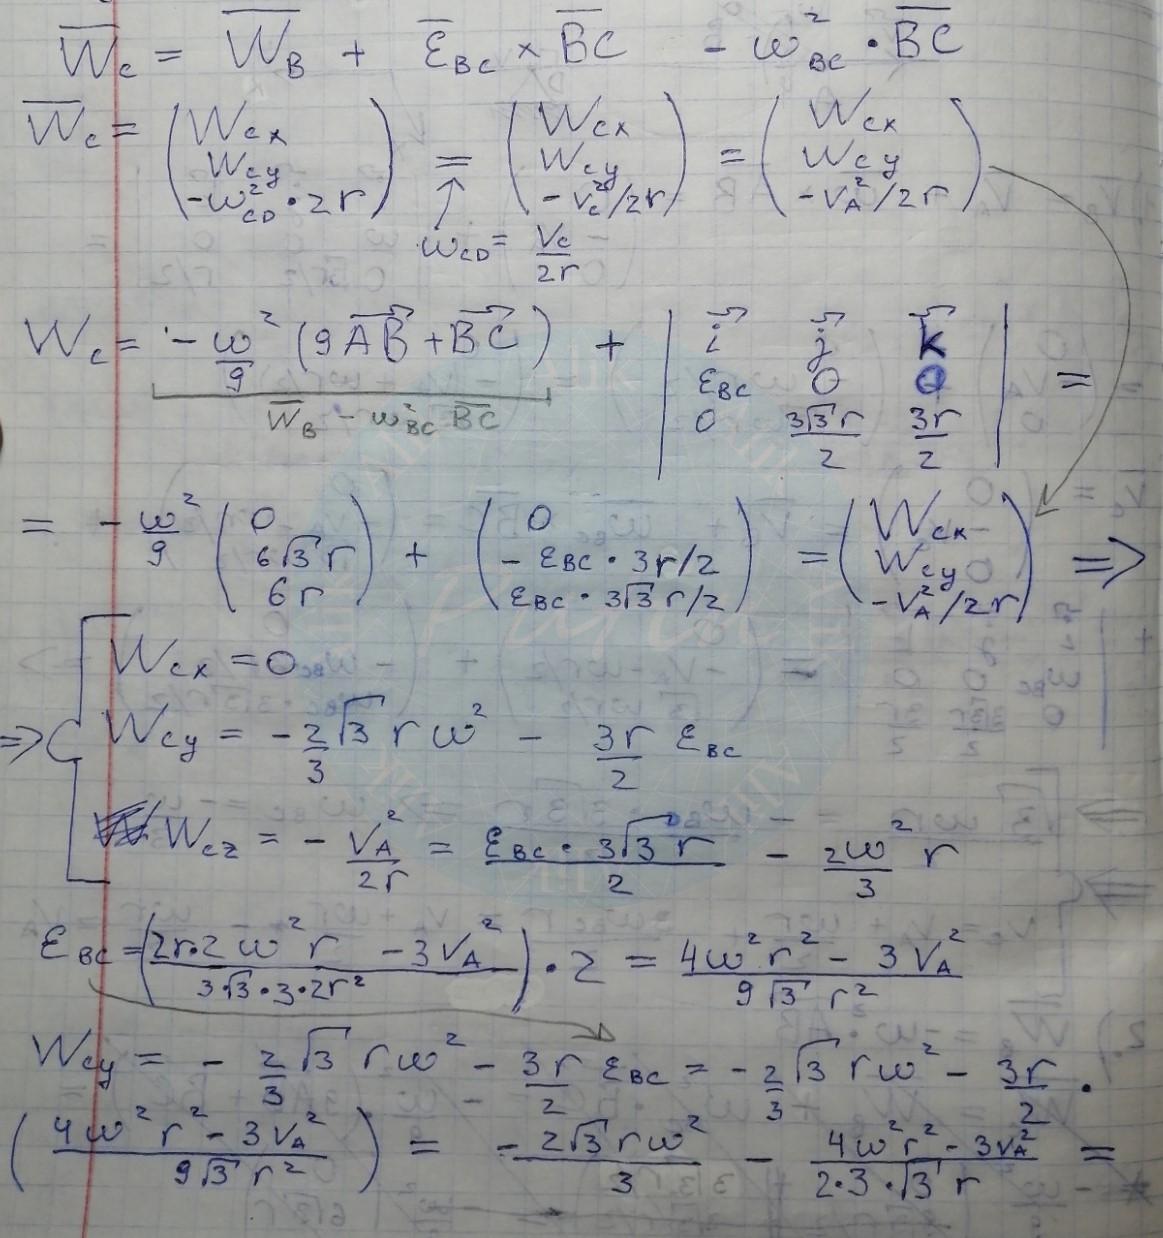 W̅c = W̅B + ε̅BC × B̅C̅ - ω²BC · B̅C̅
W̅c = (Wcx Wcy -ω²CD·2r) = (Wcx Wcy -Vc²/2r) = (Wcx Wcy -VA²/2r)
ωCD = Vc/2r
Wc = -ω²/9 (9AB + BC) + | i j k εBC 0 0 0 3√3r/2 3r/2 | =
W̅B - ω²BC B̅C̅
= -ω²/9 (0 6√3r 6r) + (0 -εBC·3r/2 εBC·3√3r/2) = (Wcx Wcy -VA²/2r) =>
Wcx = 0
=> Wcy = -2/3 √3 rω² - 3r/2 εBC
Wcz = -VA²/2r = εBC·3√3r/2 - 2ω²/3 r
εBC = (2r·2ω²r - 3VA² / 3√3·3·2r²)·2 = 4ω²r² - 3VA² / 9√3 r²
Wcy = -2/3 √3 rω² - 3r/2 εBC = -2/3 √3 rω² - 3r/2 ·
(4ω²r² - 3VA² / 9√3 r²) = -2√3rω²/3 - 4ω²r² - 3VA² / 2·3·√3 r =